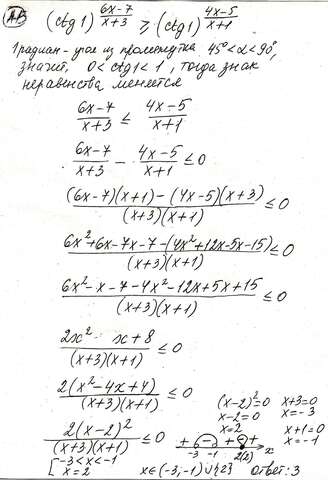 АВ (ctg1)^((6x-7)/(x+3)) ≥ (ctg1)^((4x-5)/(x+1))
1 радиан - угол из промежутка 45°<α<90°,
значит, 0 < ctg1 < 1, тогда знак
неравенства меняется
(6x-7)/(x+3) ≤ (4x-5)/(x+1)
(6x-7)/(x+3) - (4x-5)/(x+1) ≤ 0
((6x-7)(x+1) - (4x-5)(x+3))/((x+3)(x+1)) ≤ 0
(6x²+6x-7x-7-(4x²+12x-5x-15))/((x+3)(x+1)) ≤ 0
(6x²-x-7-4x²-12x+5x+15)/((x+3)(x+1)) ≤ 0
(2x² x+8)/((x+3)(x+1)) ≤ 0
2(x²-4x+4)/((x+3)(x+1)) ≤ 0
2(x-2)²/((x+3)(x+1)) ≤ 0
(x-2)²=0 x+3=0
x-2=0 x=-3
x=2 x+1=0
x=-1
+ - + +
-3 -1 2(2) x
[-3<x<-1
x=2
x∈(-3,-1)∪{2} ответ: 3